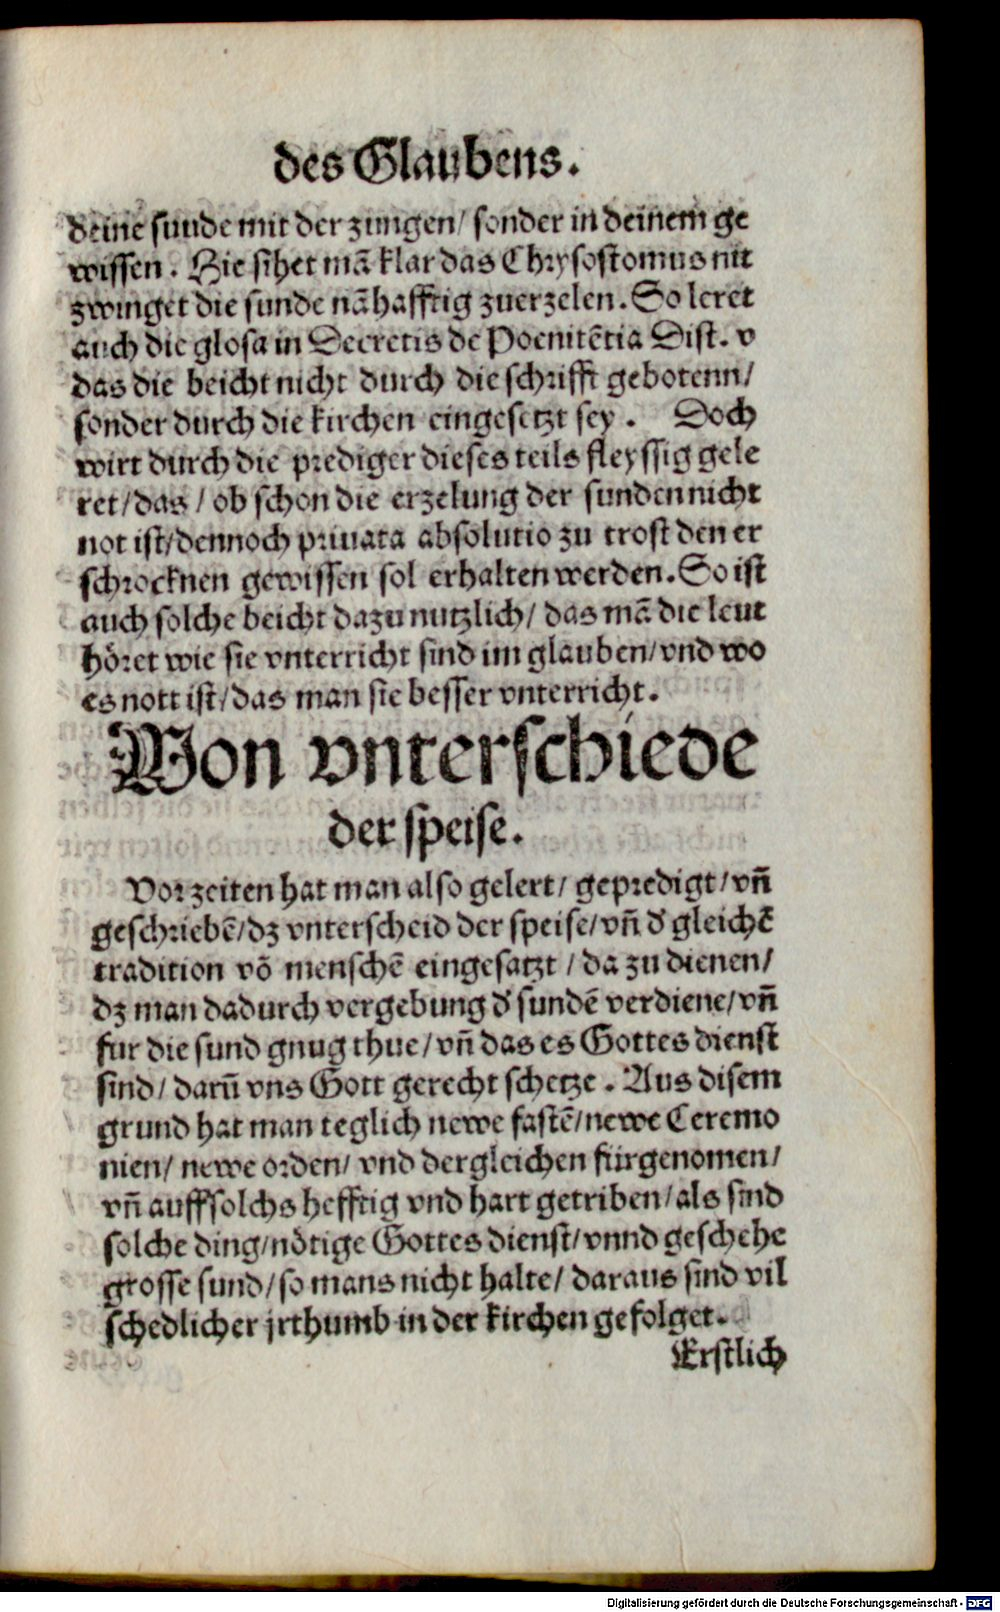 des Glaubens.
deine sunde mit der zungen/ sonder in deinem ge
wissen. Hie sihet mā klar das Chrysostomus nit
zwinget die sunde nāhafftig zuerzelen. So leret
auch die glosa in Decretis de Poenitētia Dist. v
das die beicht nicht durch die schrifft gebotenn/
sonder durch die kirchen eingesetzt sey. Doch
wirt durch die prediger dieses teils fleyssig gele
ret/das/ ob schon die erzelung der sunden nicht
not ist/dennoch priuata absolutio zu trost den er
schrocknen gewissen sol erhalten werden. So ist
auch solche beicht dazu nutzlich/ das mā die leut
höret wie sie vnterricht sind im glauben/vnd wo
es nott ist/das man sie besser vnterricht.
Von vnterschiede
der speise.
Vorzeiten hat man also gelert/ gepredigt/vn̄
geschriebē/dz vnterscheid der speise/vn̄ d' gleichē
tradition vō menschē eingesatzt/da zu dienen/
dz man dadurch vergebung d' sundē verdiene/vn̄
fur die sund gnug thue/vn̄ das es Gottes dienst
sind/ darū vns Gott gerecht schetze. Aus disem
grund hat man teglich newe fastē/newe Ceremo
nien/ newe orden/ vnd dergleichen fürgenomen/
vn̄ auff solchs hefftig vnd hart getriben/als sind
solche ding/nötige Gottes dienst/vnnd geschehe
grosse sund/so mans nicht halte/ daraus sind vil
schedlicher jrthumb in der kirchen gefolget.
Erstlich
Digitalisierung gefördert durch die Deutsche Forschungsgemeinschaft - DFG